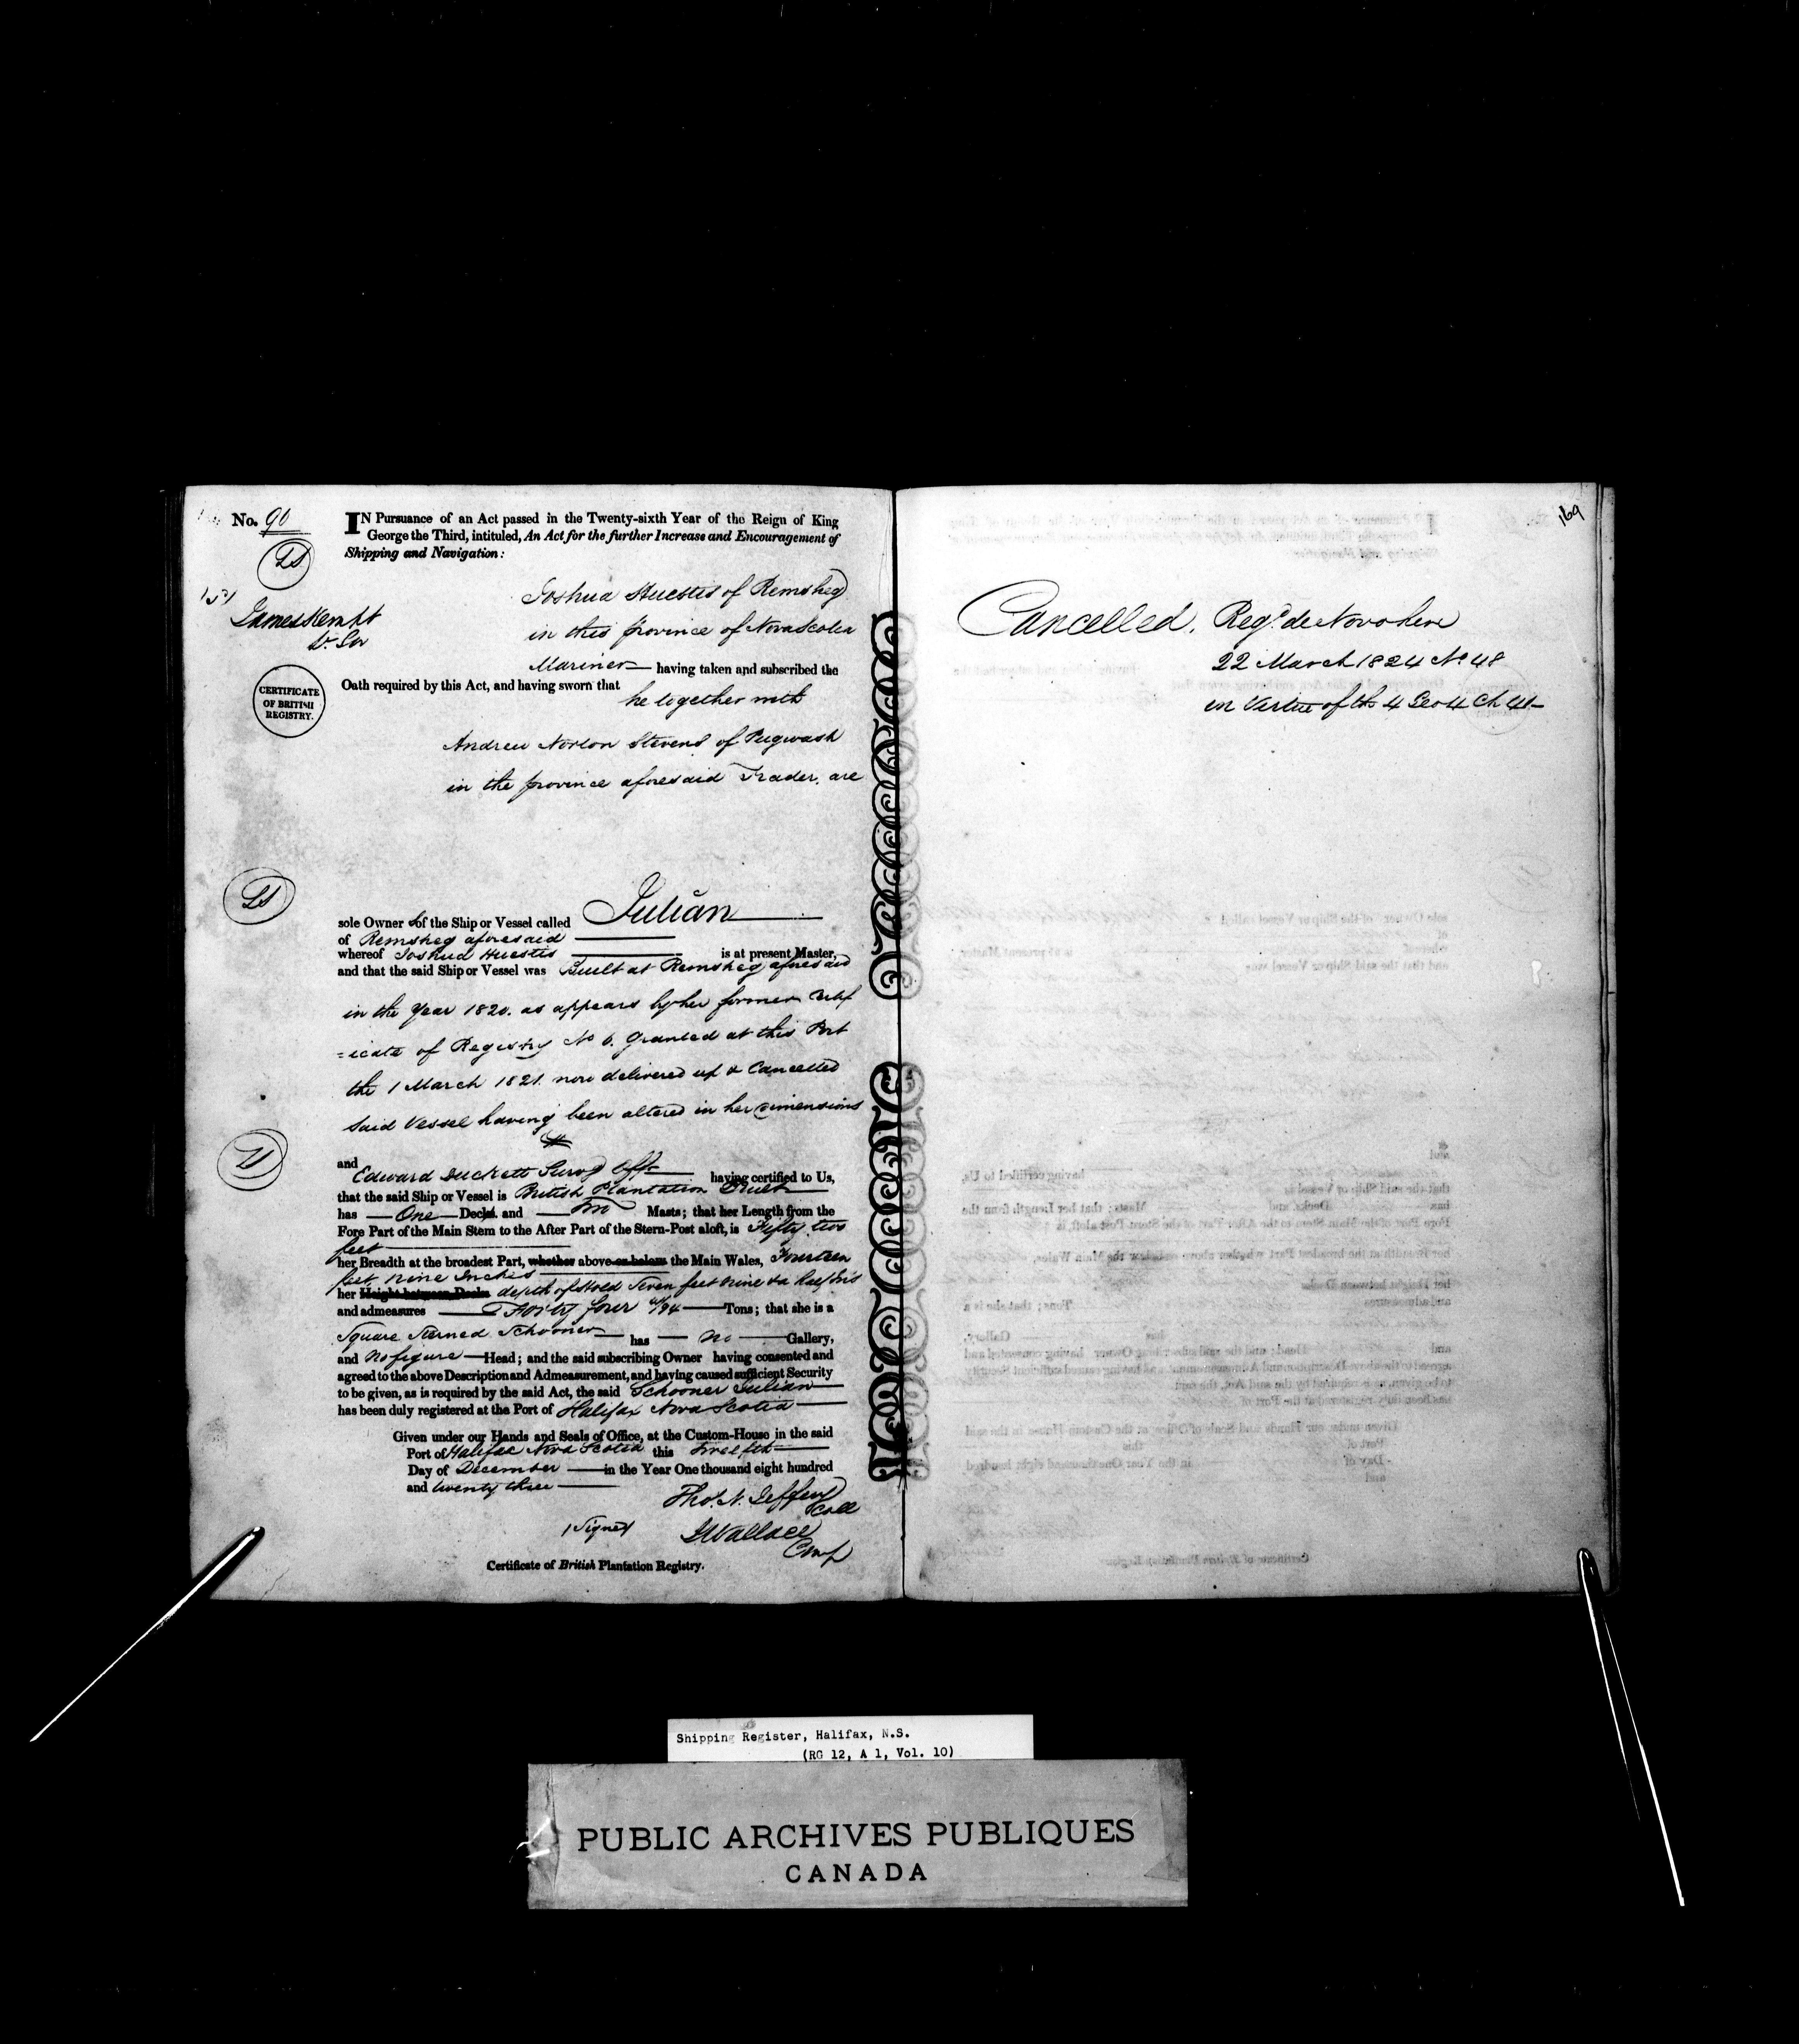 No. 90
IN Pursuance of an Act passed in the Twenty-sixth Year of the Reign of King
George the Third, intituled, An Act for the further Increase and Encouragement of
Shipping and Navigation:
LS
James Kempt
CERTIFICATE
OF BRITISH
REGISTRY.
Joshua Huestis of Remsheg
in this province of Nova Scotia
Mariner having taken and subscribed the
Oath required by this Act, and having sworn that
he together with
Andrew Norton Stevens of Pugwash
in the province aforesaid Trader. are
LS
sole Owners of the Ship or Vessel called Julian
of Remsheg aforesaid
whereof Joshua Huestis is at present Master,
and that the said Ship or Vessel was Built at Remsheg aforesaid
in the Year 1820. as appears by her former Certif
=icate of Registry No 6. Granted at this Port
the 1 March 1821. now delivered up & Cancelled
said Vessel having been altered in her dimensions
LS
and
Edward Duckett Survg Offr having certified to Us,
that the said Ship or Vessel is British Plantation Built
has One Deck and Two Masts; that her Length from the
Fore Part of the Main Stem to the After Part of the Stern-Post aloft, is Fifty two
feet
her Breadth at the broadest Part, whether above or below the Main Wales, Fourteen
feet nine Inches
her Height between Decks depth of Hold Seven feet nine & a half Ins
and admeasures Forty four /94 Tons; that she is a
Square Sterned Schooner has no Gallery,
and No figure Head; and the said subscribing Owner having consented and
agreed to the above Description and Admeasurement, and having caused sufficient Security
to be given, as is required by the said Act, the said Schooner Julian
has been duly registered at the Port of Halifax Nova Scotia
Given under our Hands and Seals of Office, at the Custom-House in the said
Port of Halifax Nova Scotia this Twelfth
Day of December in the Year One thousand eight hundred
and twenty three
Thos. N. Jeffery
Coll
Signed J Wallace
Comp
Certificate of British Plantation Registry.
169
Cancelled. Regd. de Novo here
22 March 1824 No 48
in Virtue of the 4 Geo 4 Ch 41
Shipping Register, Halifax, N.S.
(RG 12, A 1, Vol. 10)
PUBLIC ARCHIVES PUBLIQUES
CANADA